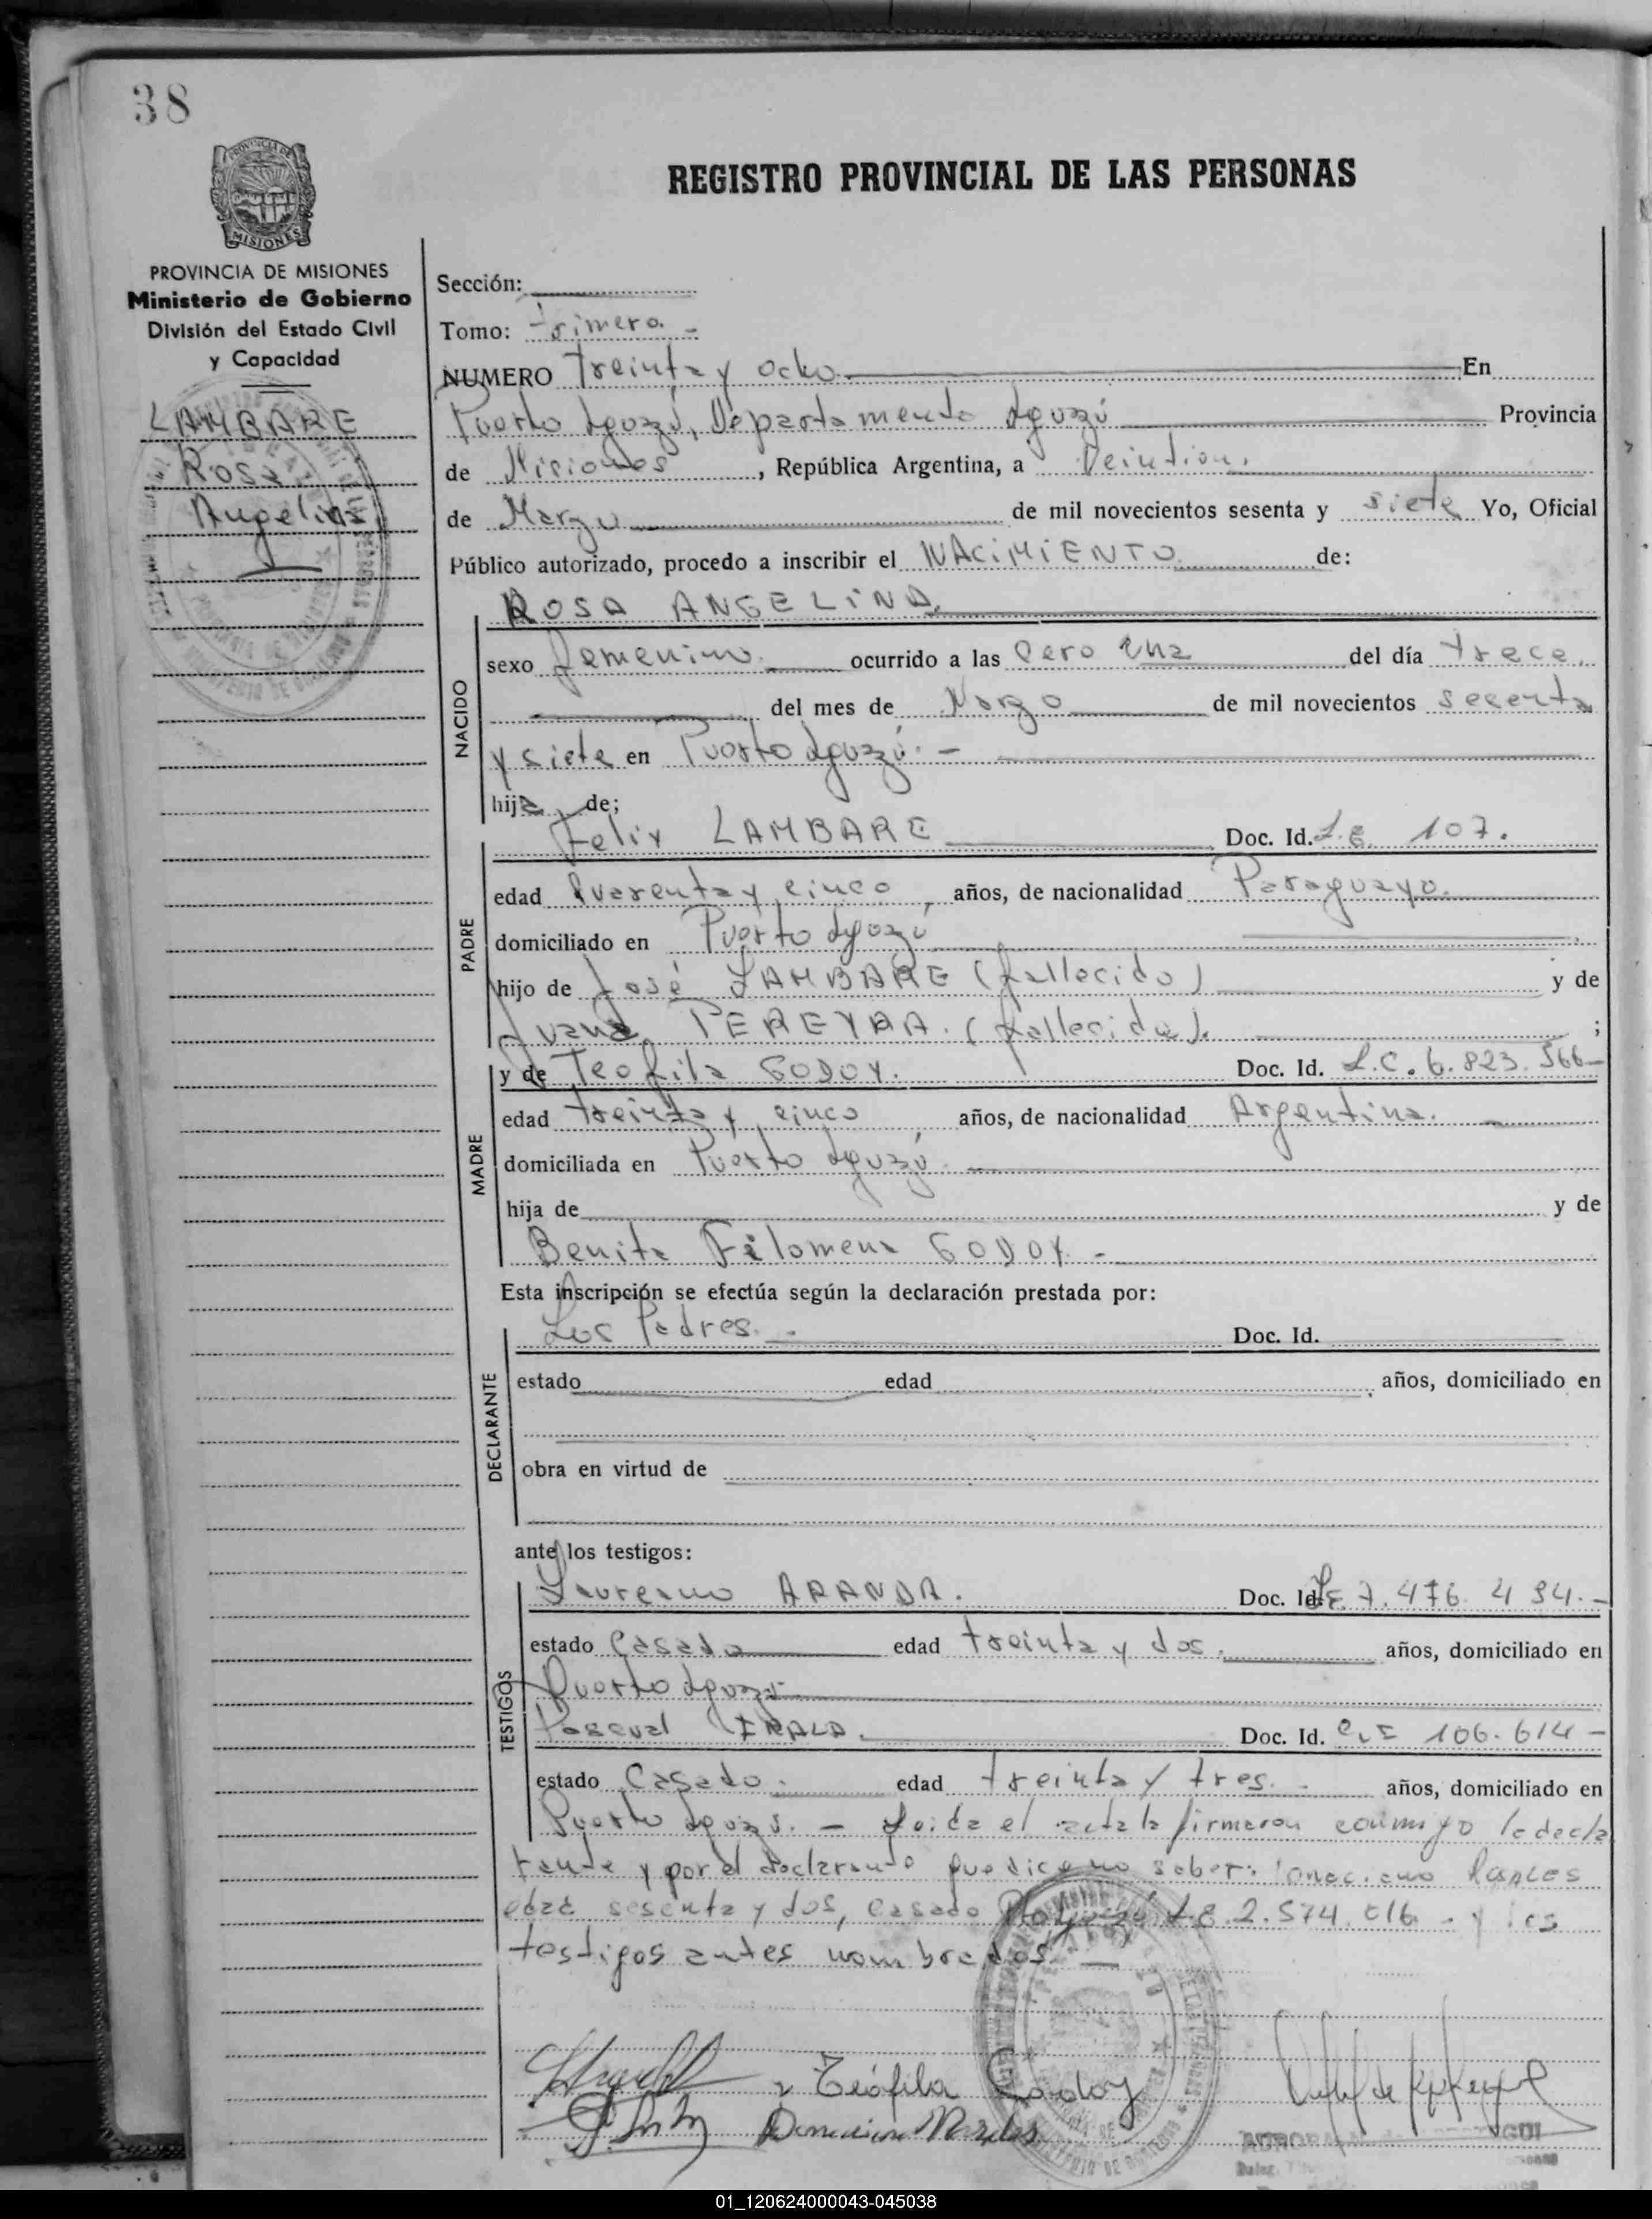 38
PROVINCIA DE
MISIONES
REGISTRO PROVINCIAL DE LAS PERSONAS
PROVINCIA DE MISIONES
Ministerio de Gobierno
División del Estado Civil
y Capacidad
LAMBARE
Rosa
Angelina
Sección:
Tomo: Primero -
NUMERO treinta y ocho En
Puerto Iguazú, Departamento Iguazú Provincia
de Misiones, República Argentina, a Veintiun
de Marzo de mil novecientos sesenta y siete Yo, Oficial
Público autorizado, procedo a inscribir el NACIMIENTO de:
ROSA ANGELINA
NACIDO
sexo femenino ocurrido a las Cero una del día trece
del mes de Marzo de mil novecientos sesenta
y siete en Puerto Iguazú. -
hija de;
PADRE
Felix LAMBARE Doc. Id. I.E. 107.
edad Cuarenta y cinco, años, de nacionalidad Paraguayo
domiciliado en Puerto Iguazú
hijo de José LAMBARE (fallecido) y de
Juana PEREYRA. (fallecida). ;
MADRE
y de Teofila GODOY. Doc. Id. L.C. 6.823.566-
edad treinta y cinco años, de nacionalidad Argentina.
domiciliada en Puerto Iguazú.
hija de y de
Benita Filomena GODOY. -
Esta inscripción se efectúa según la declaración prestada por:
DECLARANTE
Los Padres. - Doc. Id.
estado edad años, domiciliado en
obra en virtud de
ante los testigos:
TESTIGOS
Laureano ARANDA. Doc. Id. I.E. 7.476.494.-
estado Casado edad treinta y dos. años, domiciliado en
Puerto Iguazú
Pascual IRALA. Doc. Id. C.I 106.614 -
estado Casado. edad treinta y tres. - años, domiciliado en
Puerto Iguazú. - Leida el acta la firmaron conmigo la decla
rante y por el declarante que dice no saber:
edad sesenta y dos, casado I.E. 2.574.016 - y los
testigos antes nombrados. -
Teófila Godoy
01_120624000043-045038